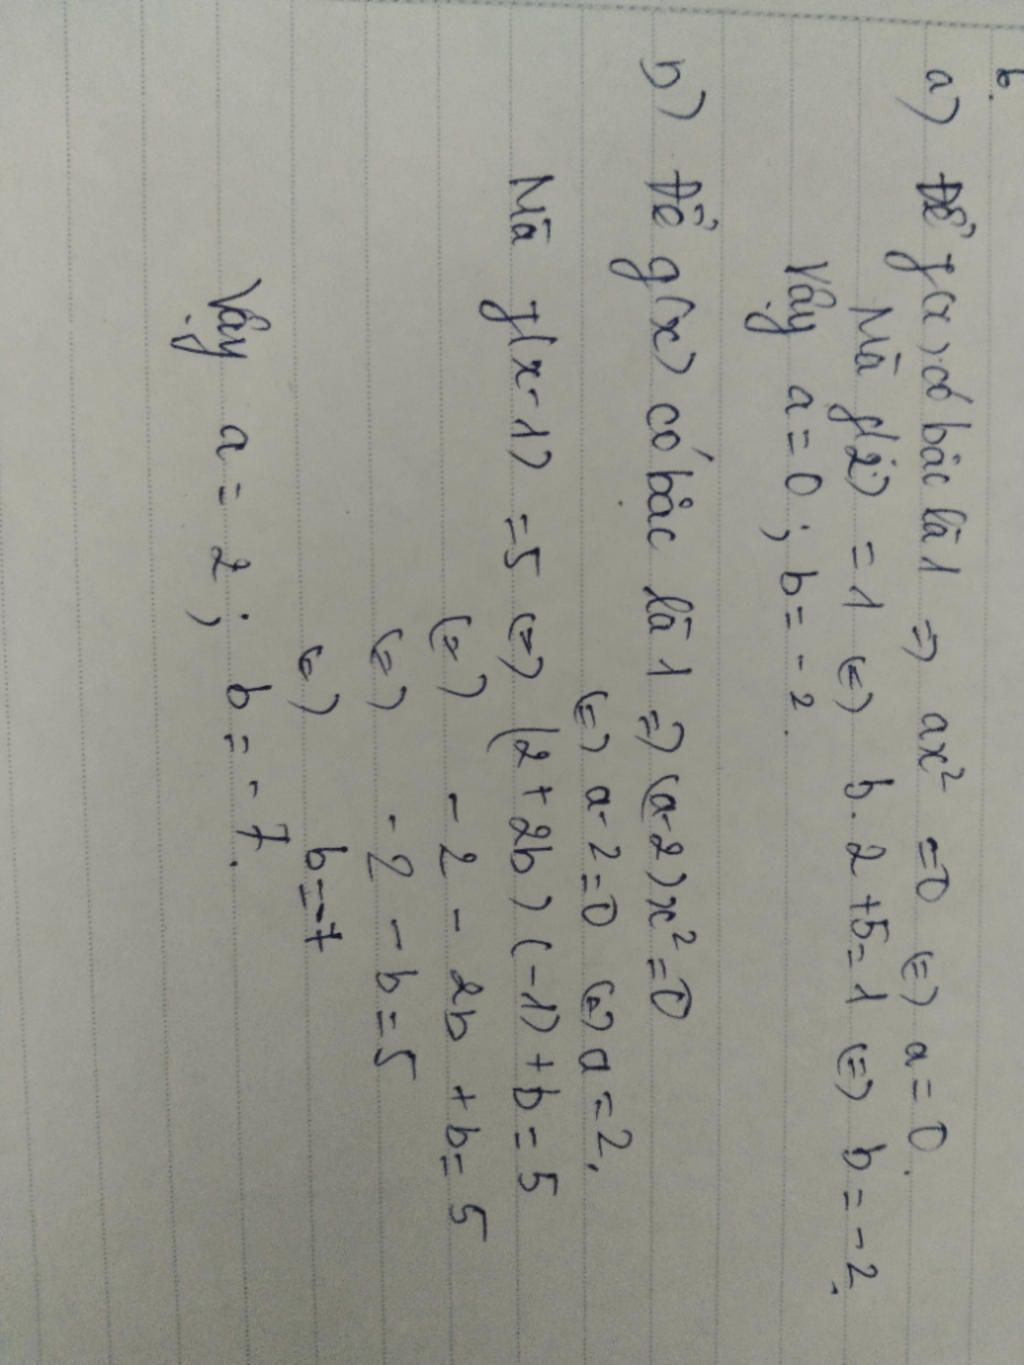 6.
a) Để g(x) có bậc là 1 => ax² = 0 (=) a = 0.
Mà g(2) = 1 (=) b. 2 + 5 = 1 (=) b = - 2.
Vậy a = 0 ; b = - 2.
b) Để g(x) có bậc là 1 => (a-2)x² = 0
(=) a - 2 = 0 (=) a = 2.
Mà g(x-1) = 5 (=) (2 + 2b) (-1) + b = 5
(=) - 2 - 2b + b = 5
(=) - 2 - b = 5
(=) b = -7
Vậy a = 2 ; b = - 7.